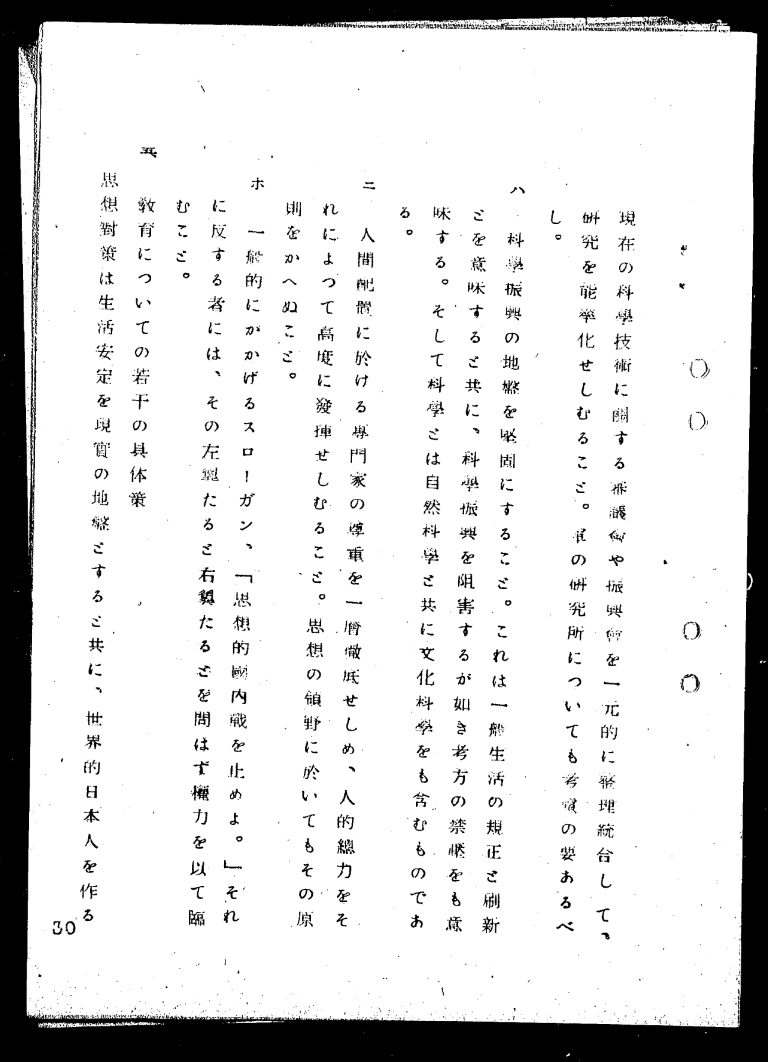 現在の科學技術に關する審議會や振興會を一元的に整理統合して、
研究を能率化せしむること。軍の研究所についても考慮の要あるべ
し。
ハ 科學振興の地盤を堅固にすること。これは一般生活の規正と刷新
とを意味すると共に、科學振興を阻害するが如き考方の禁壓をも意
味する。そして科學とは自然科學と共に文化科學をも含むものであ
る。
ニ 人間配置に於ける專門家の尊重を一層徹底せしめ、人的總力をそ
れによつて高度に發揮せしむること。思想の領野に於いてもその原
則をかへぬこと。
ホ 一般的にかかげるスローガン、「思想的國內戰を止めよ。」それ
に反する者には、その左翼たると右翼たるとを問はず權力を以て臨
むこと。
五 敎育についての若干の具体策
思想對策は生活安定を現實の地盤とすると共に、世界的日本人を作る
30